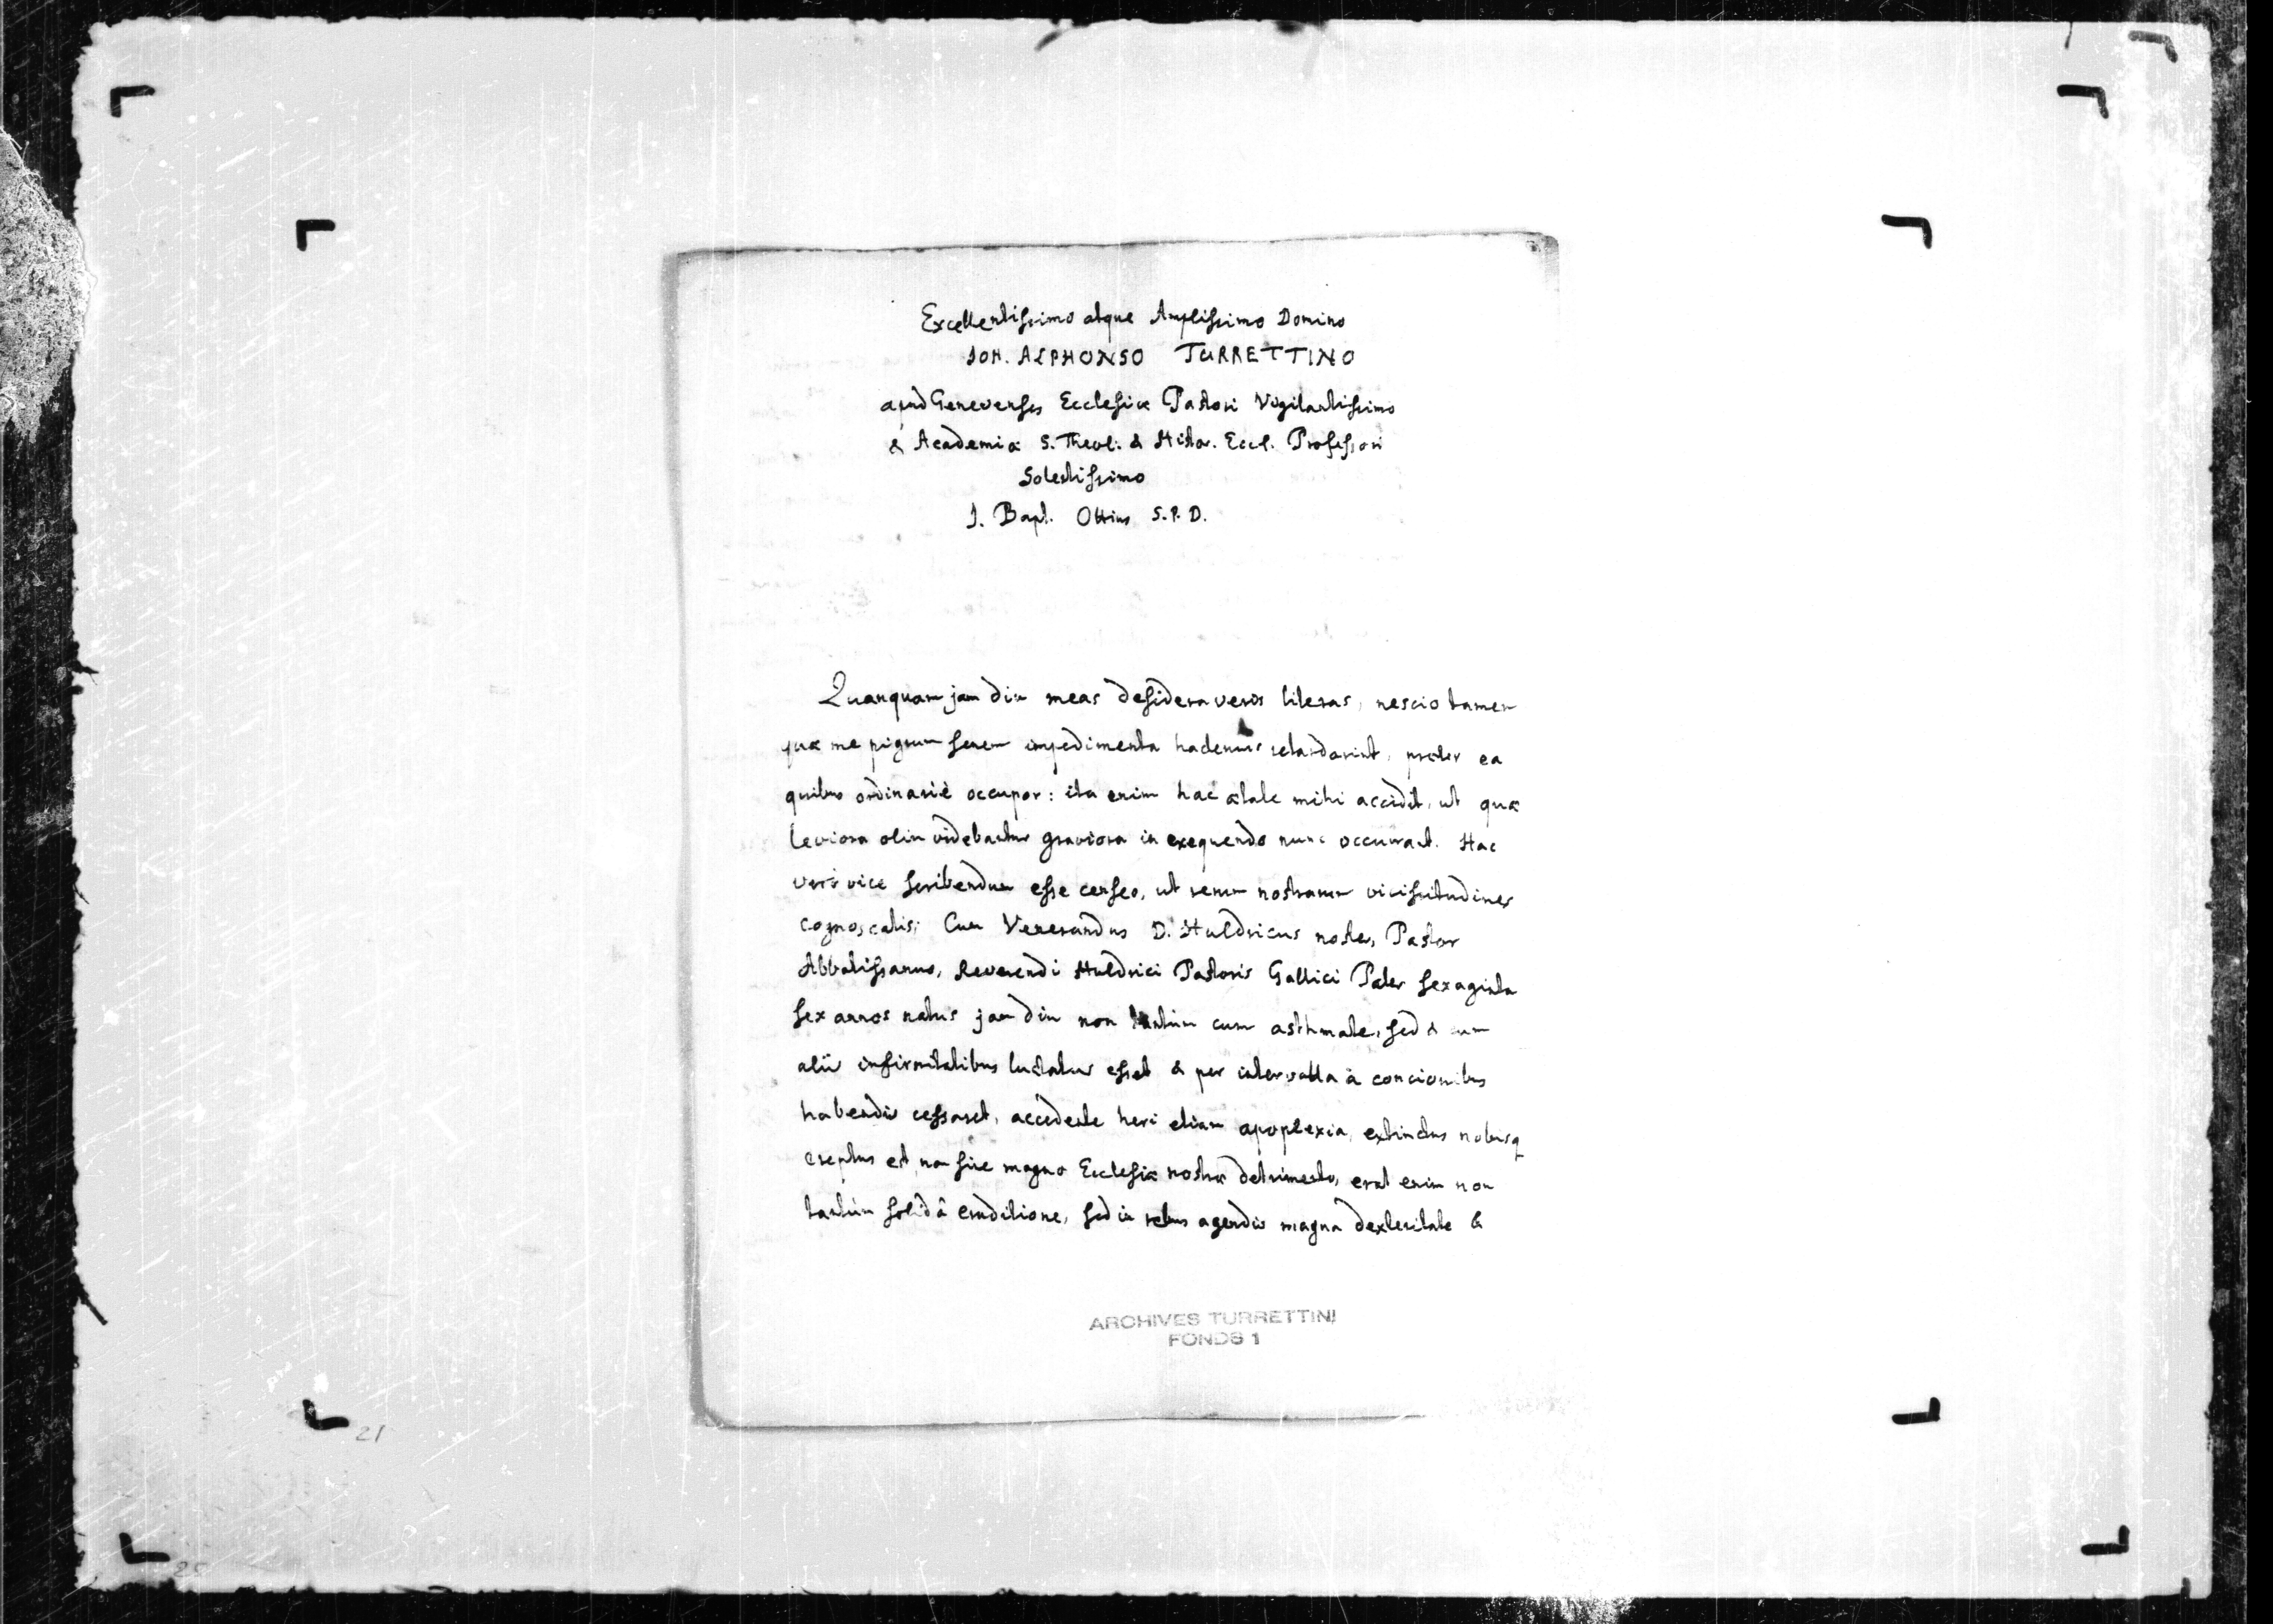 Excellentissimo atque Amplissimo Domino
JOH. ALPHONSO TURRETTINO
apud Genevenses Ecclesiæ Pastori Vigilantissimo
& Academiæ S. Theol. & Histor. Eccl. Professori
Solertissimo
J. Bapt. Ottius S.P.D.
Quanquam jam diu meas desideraveris literas, nescio tamen
quæ me pigrum senem impedimenta hactenus retardarint, præter ea
quibus ordinariè occupor: ita enim hac ætate mihi accidit, ut quæ
leviora olim videbantur graviora in exequendo nunc occurrant. Hac
verò vice scribendum esse censeo, ut rerum nostrarum vicissitudines
cognoscatis; Cum Venerandus D. Huldricus noster, Pastor
Abbatissanus, Reverendi Huldrici Pastoris Gallici Pater sexaginta
sex annos natus jam diu non tantùm cum asthmate, sed & cum
aliis infirmitatibus luctatus esset & per intervalla à concionibus
habendis cessaret, accedente heri etiam apoplexia, extinctus nobisq
ereptus est, non sine magno Ecclesiæ nostræ detrimento, erat enim non
tantùm solidâ eruditione, sed in rebus agendis magna dexteritate &
ARCHIVES TURRETTINI
FONDS 1
21
25